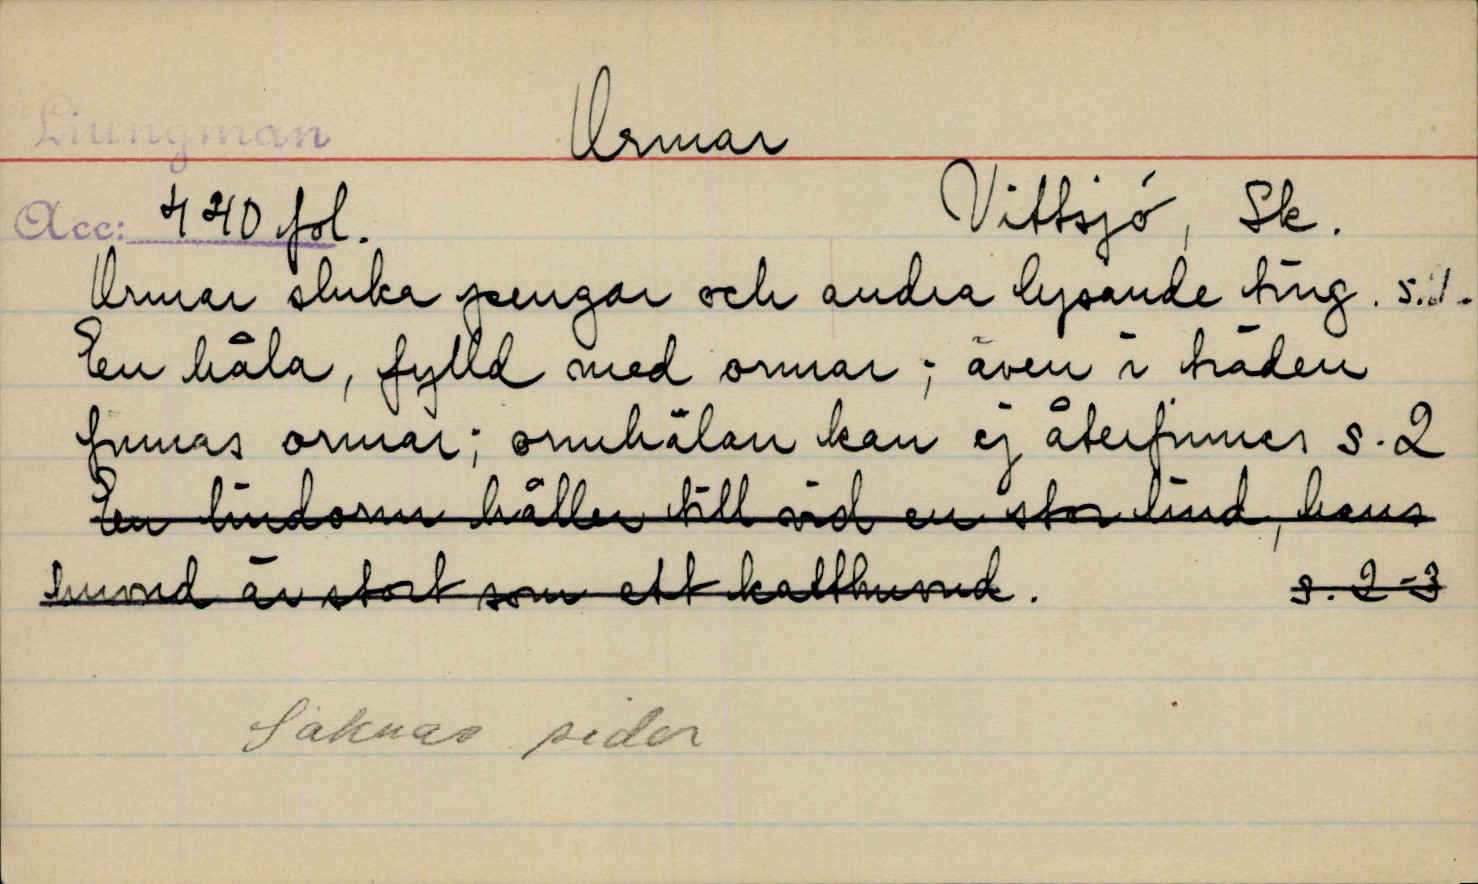 Liungman
Ormar
Acc: 440 fol.
Vittsjö, Sk.
Ormar sluka pengar och andra lysande ting. s.
En håla, fylld med ormar; även i träden
finnas ormar; ormhålan kan ej återfinnes s. 2
En lindorm håller till vid en stor lind, hans
huvud är stort som ett katthuvud. s. 2-3
Saknas sidor